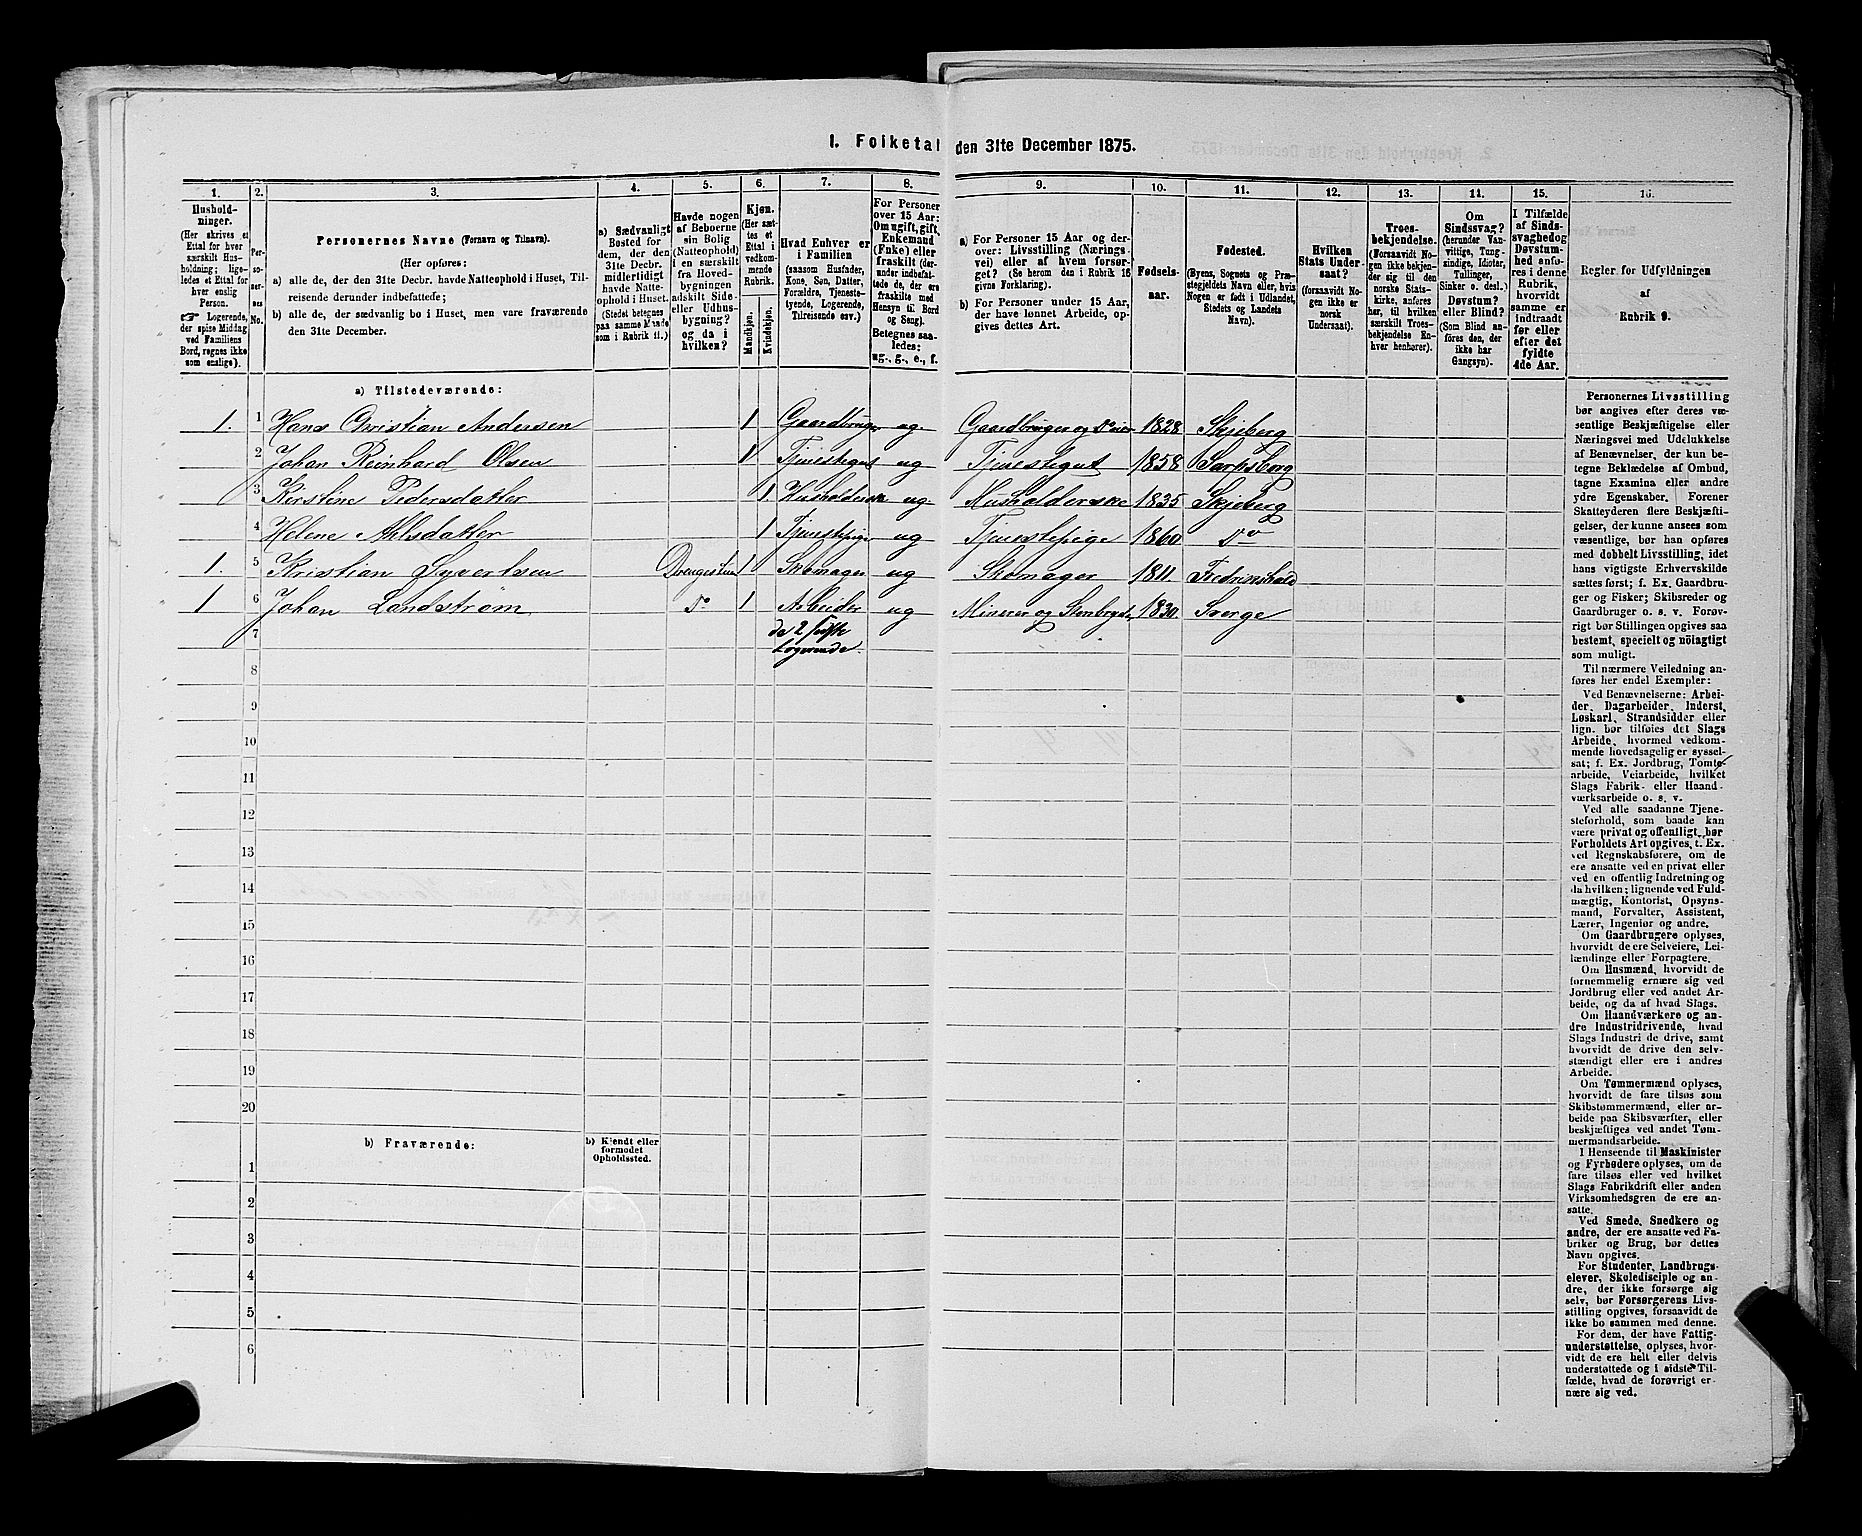 I. Folketal den 31te December 1875.
1. 2. 3. 4. 5. 6. 7. 8. 9. 10. 11. 12. 13. 14. 15. 16.
Hushold-
ninger.
(Her skrives et
Ettal for hver
særskilt Hus-
holdning; lige-
ledes et Ettal for
hver enslig
Person.
☞ Logerende,
der spise Middag
ved Familiens
Bord, regnes ikke
som enslige).
Per-
so-
ner-
nes
No.
Personernes Navne (Fornavn og Tilnavn).
(Her opføres:
a) alle de, der den 31te Decbr. havde Natteophold i Huset, Til-
reisende derunder indbefattede;
b) alle de, der sædvanlig bo i Huset, men vare fraværende
den 31te December.
a) Sædvanligt
Bosted for
dem, der den
31te Decbr.
midlertidigt
havde Natte-
ophold i Huset.
(Stedet betegnes
paa samme Maade
som i Rubrik 11.)
Havde nogen
af Beboerne
sin Bolig
(Natteophold)
i en særskilt
fra Hoved-
bygningen
adskilt Side-
eller Udhus-
bygning?
og da i
hvilken?
Kjøn.
(Her sæt-
tes et
Ettal i
vedkom-
mende
Rubrik.
Mandkjøn.
Kvindekjøn.
Hvad Enhver er
i Familien
(saasom Husfader,
Kone, Søn, Datter,
Forældre, Tjeneste-
tyende, Logerende,
Tilreisende osv.)
For Personer
over 15 Aar:
Om ugift, gift,
Enkemand
(Enke) eller
fraskilt (der-
under indbefat-
tede de, der ere
fraskilte med
Hensyn til Bord
og Seng).
Betegnes saa-
ledes:
ug., g., e., f.
a) For Personer 15 Aar og der-
over: Livsstilling (Nærings-
vei) eller af hvem forsør-
get? (Se herom den i Rubrik 16
givne Forklaring).
b) For Personer under 15 Aar,
der have lønnet Arbeide, op-
gives dettes Art.
Fødsels-
aar.
Fødested.
(Byens, Sognets og Præ-
stegjeldets Navn, eller hvis
Nogen er født i Udlandet,
Stedets og Landets
Navn).
Hvilken
Stats Under-
saat?
(forsaavidt No-
gen ikke er
norsk
Undersaat).
Troes-
bekjendelse.
(Forsaavidt No-
gen ikke bekjen-
der sig til den
norske Stats-
kirke, anføres
her, til hvilken
særskilt Troes-
bekjendelse En-
hver henhører).
Om
Sindssvag?
(herunder Van-
vittige, Tung-
sindige, Idioter,
Tullinger,
Sinker o. desl.)
Døvstum?
eller Blind?
(Som Blind an-
føres den, der
ikke har
Gangsyn).
I Tilfælde
af Sinds-
svaghed og
Døvstum-
hed anfø-
res i denne
Rubrik,
hvorvidt
samme er
indtraadt
før eller
efter det
fyldte
4de Aar.
Regler for Udfyldningen
af
Rubrik 9.
a) Tilstedeværende:
1. 1 Hans Christian Andersen 1 Gaardbruger ug. Gaardbruger og Do eier 1828 Skjeberg
2 Johan Reinhard Olsen 1 Tjenestegut ug Tjenestegut 1858 Sarpsborg
3 Kirstine Pedersdatter 1 Husholderske ug. Husholderske 1835 Skjeberg
4 Helene Ahlsdatter 1 Tjenestepige ug Tjenestepige 1860 Do
1. 5 Kristian Syvertsen Drengestuen 1 Skomager ug Skomager 1811 Fredrikshald
1 6 Johan Landstrøm Do 1 Arbeider ug Minerer og Stenbryder 1830. Sverge
7 de 2 sidste
Logerende.
8
9
10
11
12
13
14
15
16
17
18
19
20
b) Fraværende:
b) Kjendt eller
formodet
Opholdssted.
1
2
3
4
5
6
Personernes Livsstilling
bør angives efter deres væ-
sentlige Beskjæftigelse eller
Næringsvei med Udelukkelse
af Benævnelser, der kun be-
tegne Beklædelse af Ombud,
tagne Examina eller andre
ydre Egenskaber. Forener
Skatteyderen flere Beskjæfti-
gelser, der kunne ansees som
væsentlige, bør han opføres
med dobbelt Livsstilling, idet
hans vigtigste Erhvervskilde
sættes først; f. Ex. Gaardbru-
ger og Fisker; Skibsreder og
Gaardbruger o. s. v. Forøv-
rigt bør Stillingen opgives saa
bestemt, specielt og nöiagtigt
som muligt.
Til nærmere Veiledning an-
føres her endel Exempler:
Ved Benævnelserne: Arbei-
der, Dagarbeider, Inderst,
Løskarl, Strandsidder eller
lign. bør tilføies det Slags
Arbeide, hvormed vedkom-
mende hovedsagelig er syssel-
sat; f. Ex. Jordbrug, Tomte-
arbeide, Veiarbeide, hvilket
Slags Fabrik- eller Haand-
værksarbeide o. s. v.
Ved alle saadanne Tjene-
steforhold, som baade kan
være privat og offentligt, bør
Forholdets Art opgives, t. Ex.
ved Regnskabsførere, om de
ere ansatte ved en privat eller
ved en offentlig Indretning og
da hvilken; lignende ved Fuld-
mægtig, Kontorist, Opsyns-
mand, Forvalter, Assistent,
Lærer, Ingeniør og andre.
Om Gaardbrugere oplyses,
hvorvidt de ere Selveiere, Lei-
lændinge eller Forpagtere.
Om Husmænd, hvorvidt de
fornemmelig ernære sig ved
Jordbrug eller ved andet Ar-
beide, og da af hvad Slags.
Om Haandværkere og an-
dre Industridrivende, hvad
Slags Industri de drive, samt
hvorvidt de drive den selv-
stændigt eller ere i andres
Arbeide.
Om Tømmermænd oplyses,
hvorvidt de fare tilsøs som
Skibstømmermænd, eller ar-
beide paa Skibsværfter, eller
beskjæftiges ved andet Tøm-
mermandsarbeide.
I Henseende til Maskinister
og Fyrbødere oplyses, om de
fare tilsøs eller ved hvilket
Slags Fabrikdrift eller anden
Virksomhedsgren de ere an-
satte.
Ved Smede, Snedkere og
andre, der ere ansatte ved Fa-
briker og Brug, bør dettes
Navn opgives.
For Studenter, Landbrugs-
elever, Skoledisciple og an-
dre, der ikke forsørge sig
selv, bør Forsørgerens Livs-
stilling opgives, forsaavidt de
ikke bo sammen med denne.
For dem, der have Fattig-
understøttelse, oplyses, hvor-
vidt de ere helt eller delvis
understøttede og i sidste Til-
fælde, hvad de forøvrigt er-
nære sig ved.